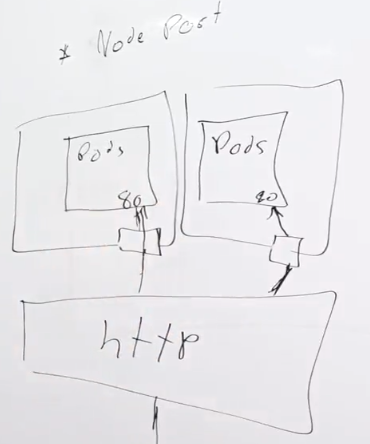 * Node Port
Pods
Pods
80
80
http